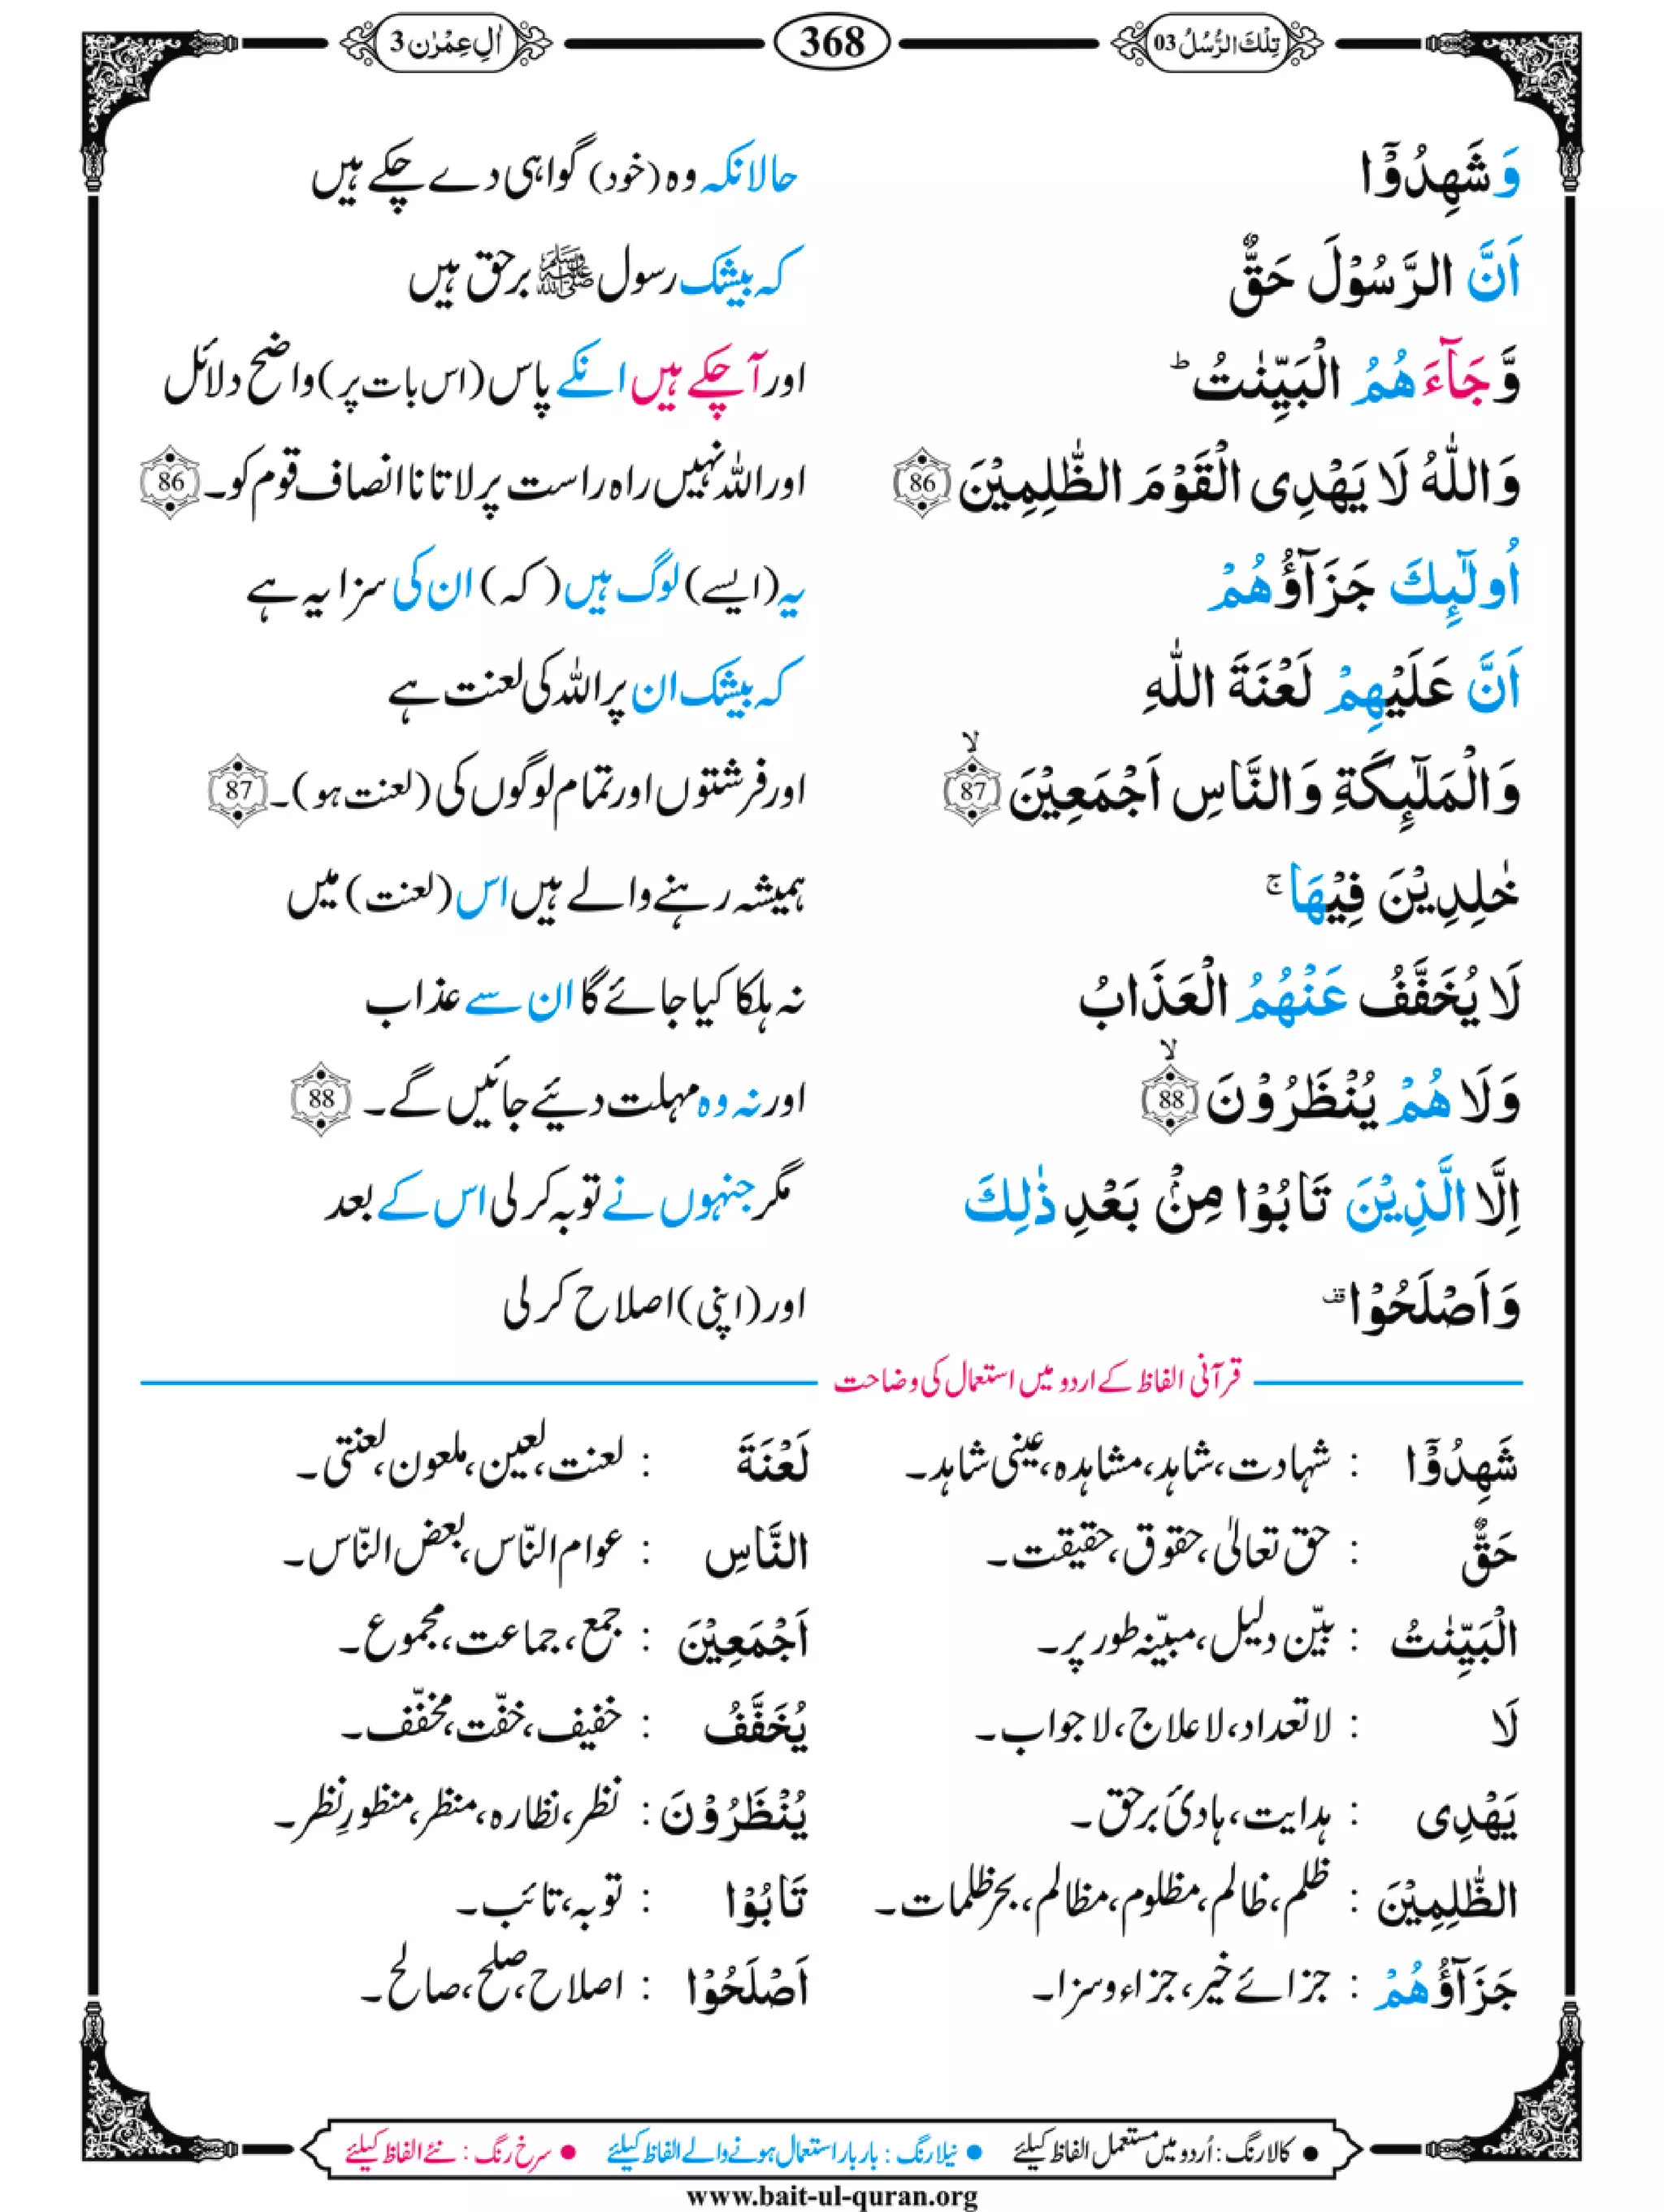 تِلْكَ الرُّسُلُ 03 368 اٰلِ عِمْرٰن 3
وَ شَهِدُوْۤا حالانکہ وہ (خود) گواہی دے چکے ہیں
اَنَّ الرَّسُوْلَ حَقٌّ کہ بیشک رسول ﷺ برحق ہیں
وَّ جَآءَهُمُ الْبَيِّنٰتُ ؕ اور آ چکے ہیں انکے پاس (اس بات پر) واضح دلائل
وَاللّٰهُ لَا يَهْدِى الْقَوْمَ الظّٰلِمِيْنَ 86 اور اللہ نہیں راہ راست پر لاتا نا انصاف قوم کو۔ 86
اُولٰٓئِكَ جَزَآؤُهُمْ یہ (ایسے) لوگ ہیں (کہ) ان کی سزا یہ ہے
اَنَّ عَلَيْهِمْ لَعْنَةَ اللّٰهِ کہ بیشک ان پر اللہ کی لعنت ہے
وَالْمَلٰٓئِكَةِ وَالنَّاسِ اَجْمَعِيْنَ ۙ 87 اور فرشتوں اور تمام لوگوں کی (لعنت ہو)۔ 87
خٰلِدِيْنَ فِيْهَا ۚ ہمیشہ رہنے والے ہیں اس (لعنت) میں
لَا يُخَفَّفُ عَنْهُمُ الْعَذَابُ نہ ہلکا کیا جائے گا ان سے عذاب
وَلَا هُمْ يُنْظَرُوْنَ ۙ 88 اور نہ وہ مہلت دئیے جائیں گے۔ 88
اِلَّا الَّذِيْنَ تَابُوْا مِنْۢ بَعْدِ ذٰلِكَ مگر جنہوں نے توبہ کر لی اس کے بعد
وَاَصْلَحُوْا ۟ قف اور (اپنی) اصلاح کر لی
قرآنی الفاظ کے اردو میں استعمال کی وضاحت
شَهِدُوْۤا : شہادت، شاہد، مشاہدہ، عینی شاہد۔ لَعْنَةَ : لعنت، لعین، ملعون، لعنتی۔
حَقٌّ : حق تعالیٰ، حقوق، حقیقت۔ النَّاسِ : عوام النّاس، بعض النّاس۔
الْبَيِّنٰتُ : بیّن دلیل، مبیّنہ طور پر۔ اَجْمَعِيْنَ : جمع، جماعت، مجموع۔
لَا : لاتعداد، لاعلاج، لاجواب۔ يُخَفَّفُ : خفیف، خفّت، مخفّف۔
يَهْدِى : ہدایت، ہادیٔ برحق۔ يُنْظَرُوْنَ : نظر، نظارہ، منظر، منظورِ نظر۔
الظّٰلِمِيْنَ : ظلم، ظالم، مظلوم، مظالم، بحر ظلمات۔ تَابُوْا : توبہ، تائب۔
جَزَآؤُهُمْ : جزائے خیر، جزاء و سزا۔ اَصْلَحُوْا : اصلاح، صلح، صالح۔
● کالا رنگ : اُردو میں مستعمل الفاظ کیلئے ● نیلا رنگ : بار بار استعمال ہونے والے الفاظ کیلئے ● سرخ رنگ : نئے الفاظ کیلئے
www.bait-ul-quran.org